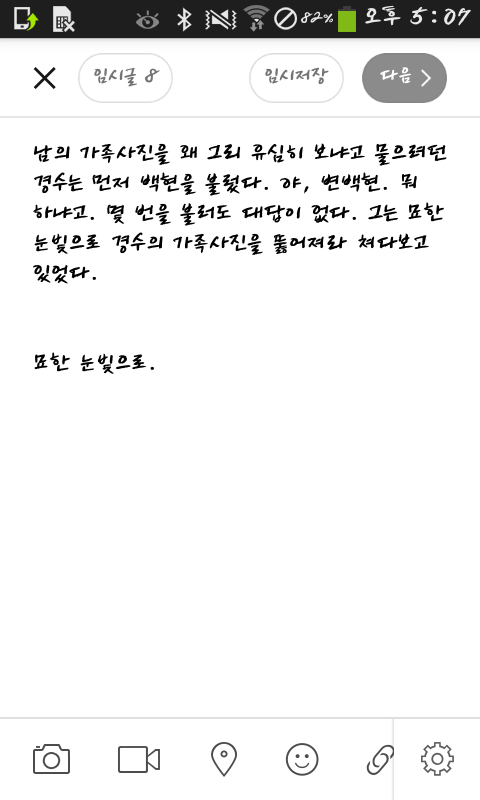 82% 오후 5:07
임시글 8 임시저장 다음
남의 가족사진을 왜 그리 유심히 보냐고 물으려던
경수는 먼저 백현을 불렀다. 야, 변백현. 뭐
하냐고. 몇 번을 불러도 대답이 없다. 그는 묘한
눈빛으로 경수의 가족사진을 뚫어져라 쳐다보고
있었다.
묘한 눈빛으로.